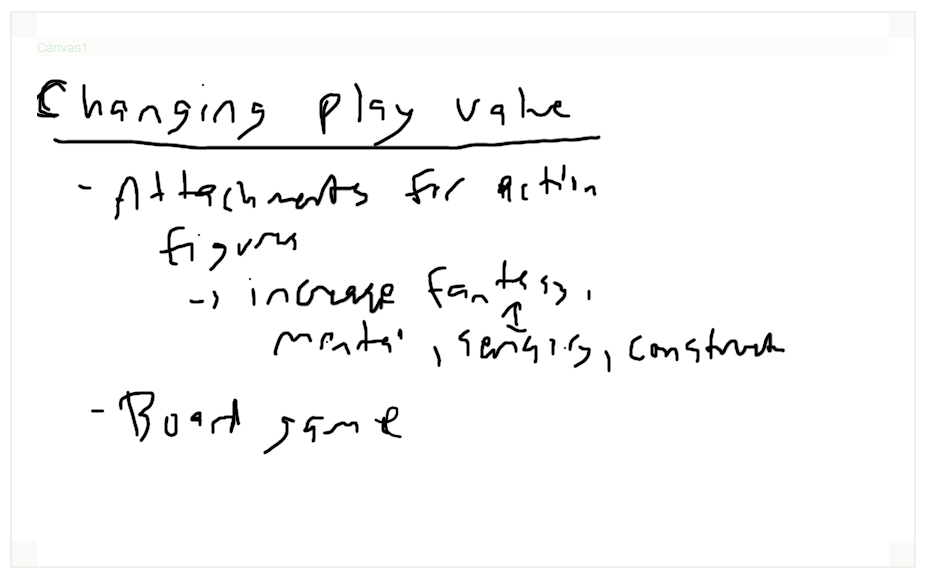 Canvas1
Changing play value
- Attachments for action
figures
-> increase fantasy,
mental, sensory, construct
- Board game